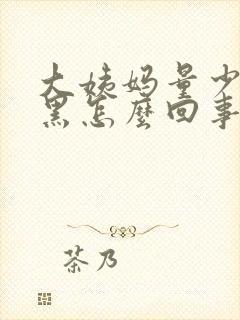 大姨妈量少
黑怎麼回事
茶乃